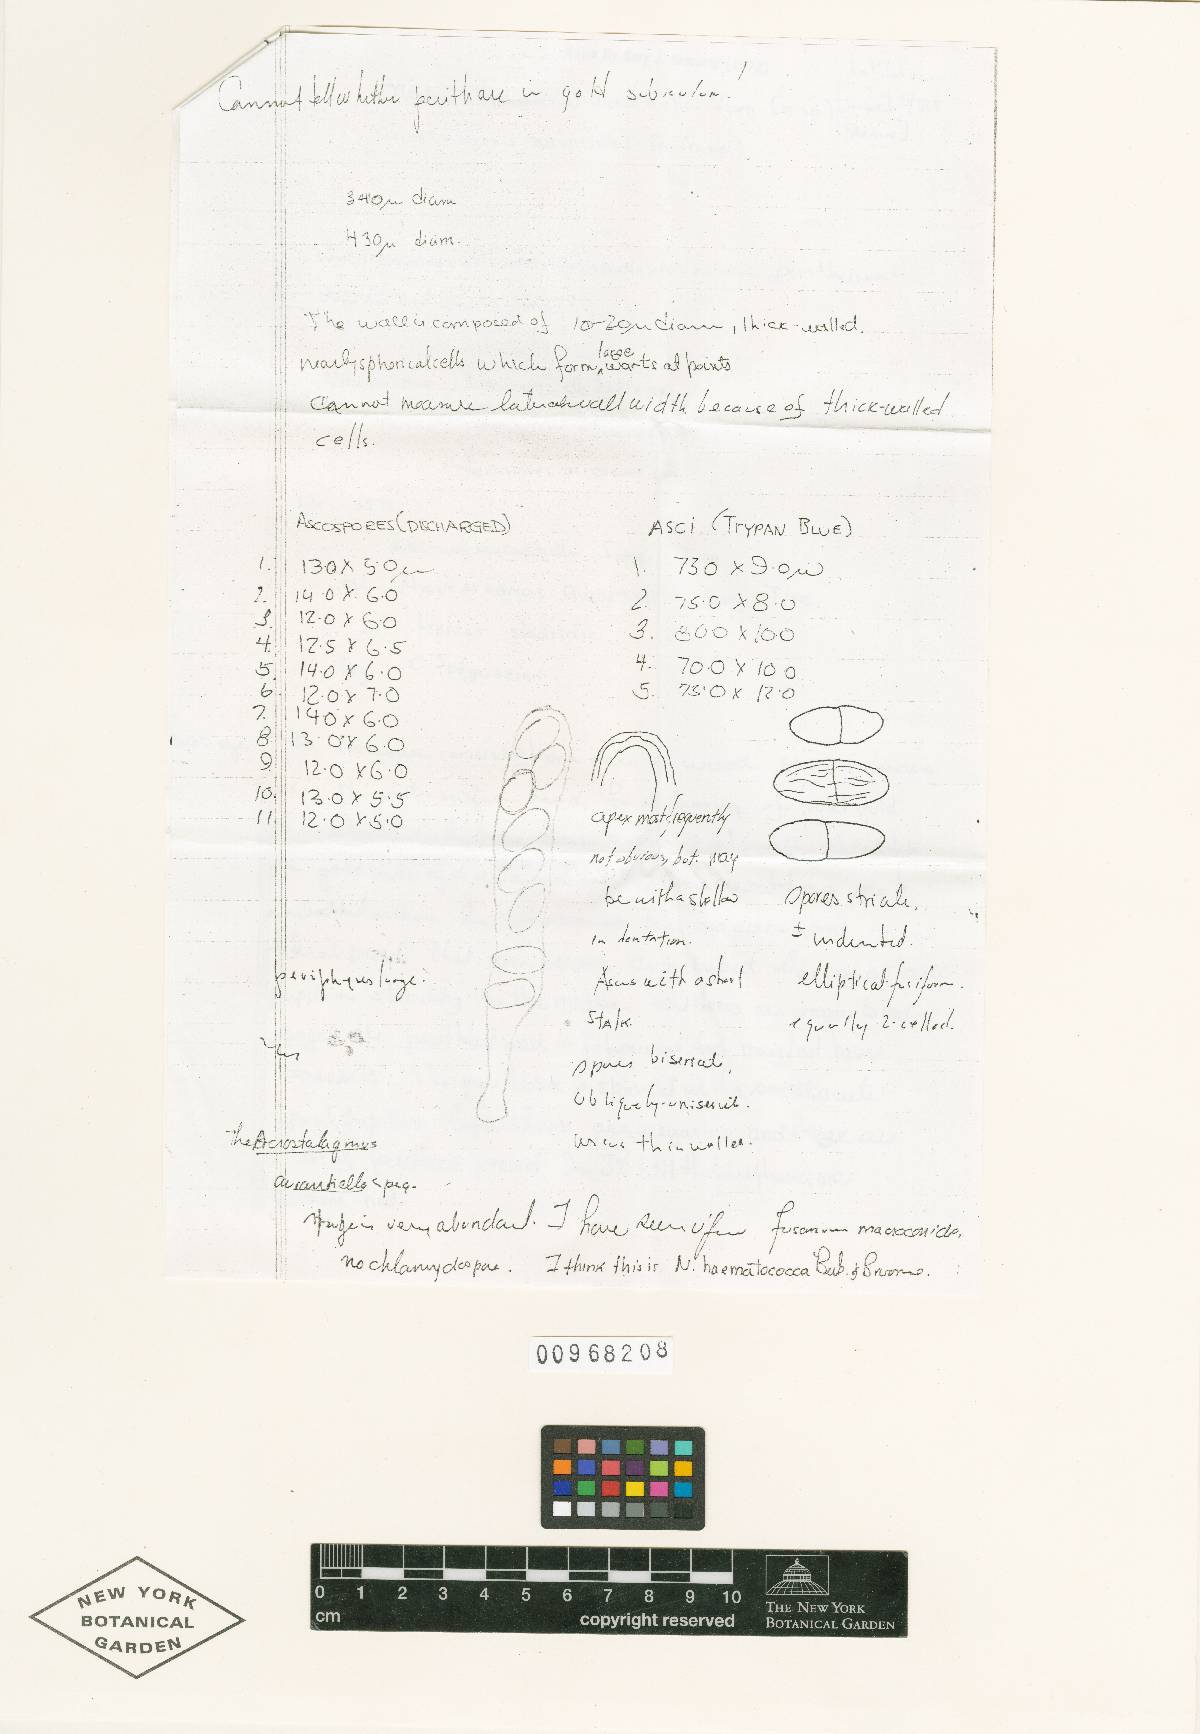 Cannot tell whether perithece in gold subiculum!
340μ diam
430μ diam.
The wall is composed of 10-20μ diam, thick-walled.
nearly spherical cells which form large warts at points
Cannot measure lateral wall width because of thick-walled
cells.
ASCOSPORES (DISCHARGED)
1. 13.0 X 5.0μ
2. 14.0 X 6.0
3. 12.0 X 6.0
4. 12.5 X 6.5
5. 14.0 X 6.0
6. 12.0 X 7.0
7. 14.0 X 6.0
8. 13.0 X 6.0
9. 12.0 X 6.0
10. 13.0 X 5.5
11. 12.0 X 5.0
ASCI (TRYPAN BLUE)
1. 73.0 X 9.0μ
2. 75.0 X 8.0
3. 80.0 X 10.0
4. 70.0 X 10.0
5. 75.0 X 12.0
apex most frequently
not obvious, but may
be with a shallow
indentation.
Ascus with a short
stalk.
spores biseriate,
obliquely-uniseriate.
ascus thin walled.
spores striate.
± indented.
elliptical-fusiform.
equally 2-celled.
periphyses large:
The Acrostalagmus
aurantiellus Speg.
stage is very abundant. I have seen a few fusarium macroconidia,
no chlamydospore. I think this is N. haematococca Berk. & Broome.
00968208
NEW YORK
BOTANICAL
GARDEN
0 1 2 3 4 5 6 7 8 9 10
cm
copyright reserved
THE NEW YORK
BOTANICAL GARDEN